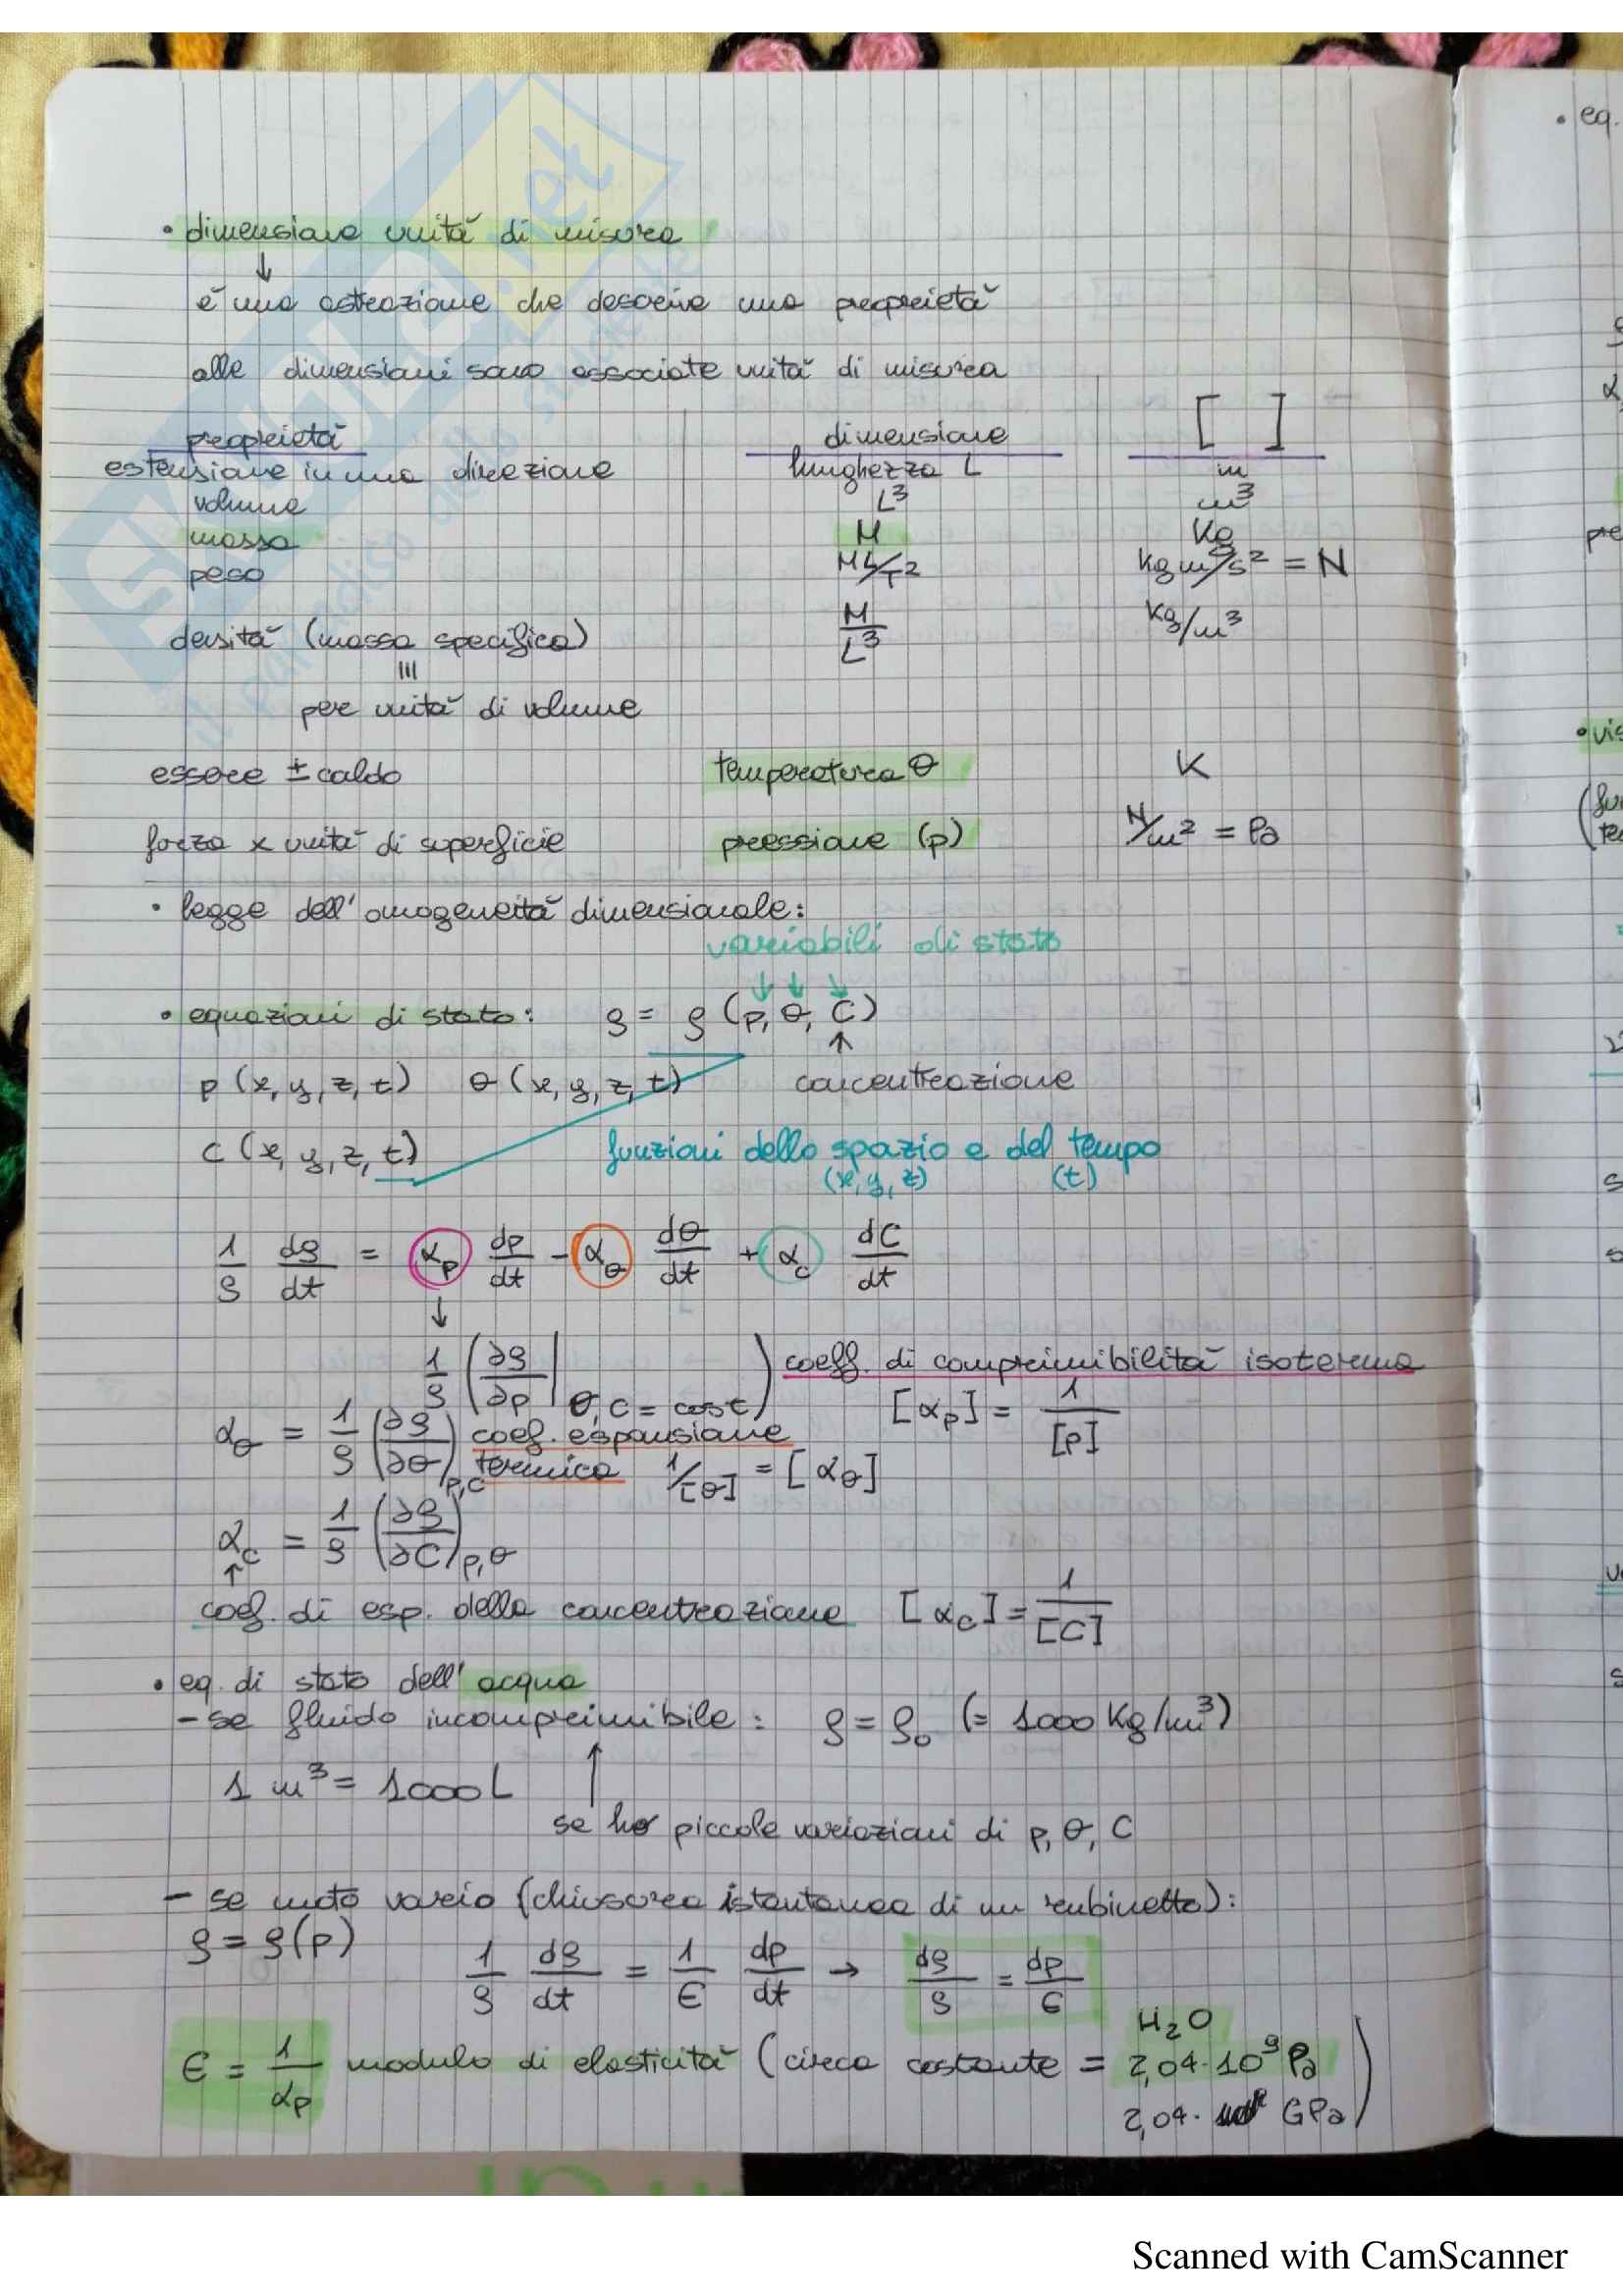 • dimensione unità di misura
↓
è una astrazione che descrive una proprietà
alle dimensioni sono associate unità di misura
proprietà dimensione [ ]
estensione in una direzione lunghezza L m
volume L³ m³
massa M Kg
peso ML/T² Kg m/s² = N
densità (massa specifica) M/L³ Kg/m³
≡
per unità di volume
essere ± caldo temperatura θ K
forza x unità di superficie pressione (p) N/m² = Pa
• legge dell'omogeneità dimensionale:
variabili di stato
↓ ↓ ↓
• equazioni di stato: ρ = ρ (p, θ, C)
↑
p (x, y, z, t) θ (x, y, z, t) concentrazione
C (x, y, z, t) funzioni dello spazio e del tempo
(x, y, z) (t)
1/ρ dρ/dt = αp dp/dt - αθ dθ/dt + αc dC/dt
↓
1/ρ (∂ρ/∂p | θ, C = cost) coeff. di comprimibilità isoterma
[αp] = 1/[p]
αθ = 1/ρ (∂ρ/∂θ)p,c coef. espansione
termica 1/[θ] = [αθ]
αc = 1/ρ (∂ρ/∂C)p,θ
↑
coef. di esp. della concentrazione [αc] = 1/[C]
• eq. di stato dell'acqua
- se fluido incomprimibile: ρ = ρ₀ (= 1000 Kg/m³)
1 m³ = 1000 L ↑
se ho piccole variazioni di p, θ, C
- se moto vario (chiusura istantanea di un rubinetto):
ρ = ρ(p)
1/ρ dρ/dt = 1/ϵ dp/dt → dρ/ρ = dp/ϵ
H₂O
ϵ = 1/αp modulo di elasticità (circa costante = 2,04·10⁹ Pa
2,04· GPa)
• eq.
α
pre
• vis
Scanned with CamScanner